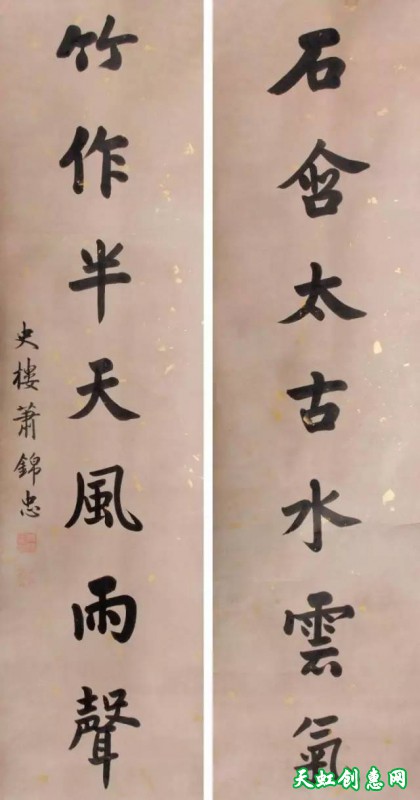 石含太古水雲氣
竹作半天風雨聲
史樓蕭錦忠
天虹创惠网